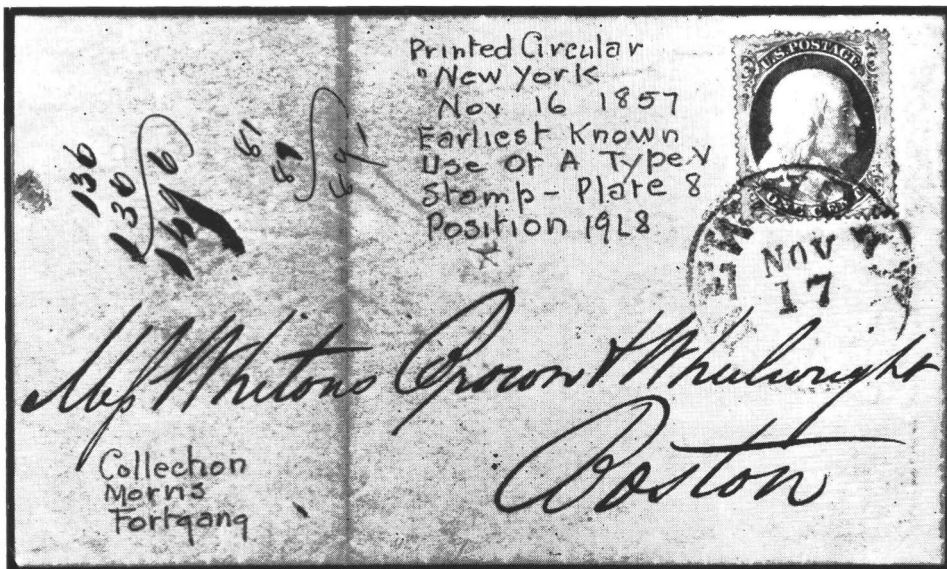 Printed Circular
"New York
Nov 16 1857
Earliest Known
Use Of A Type V
Stamp - Plate 8
Position 19L8
U.S. POSTAGE
NOV
17
136
136
1496
81
89
Mess Whitons Brown & Wheelwright
Boston
Collection
Morris
Fortgang